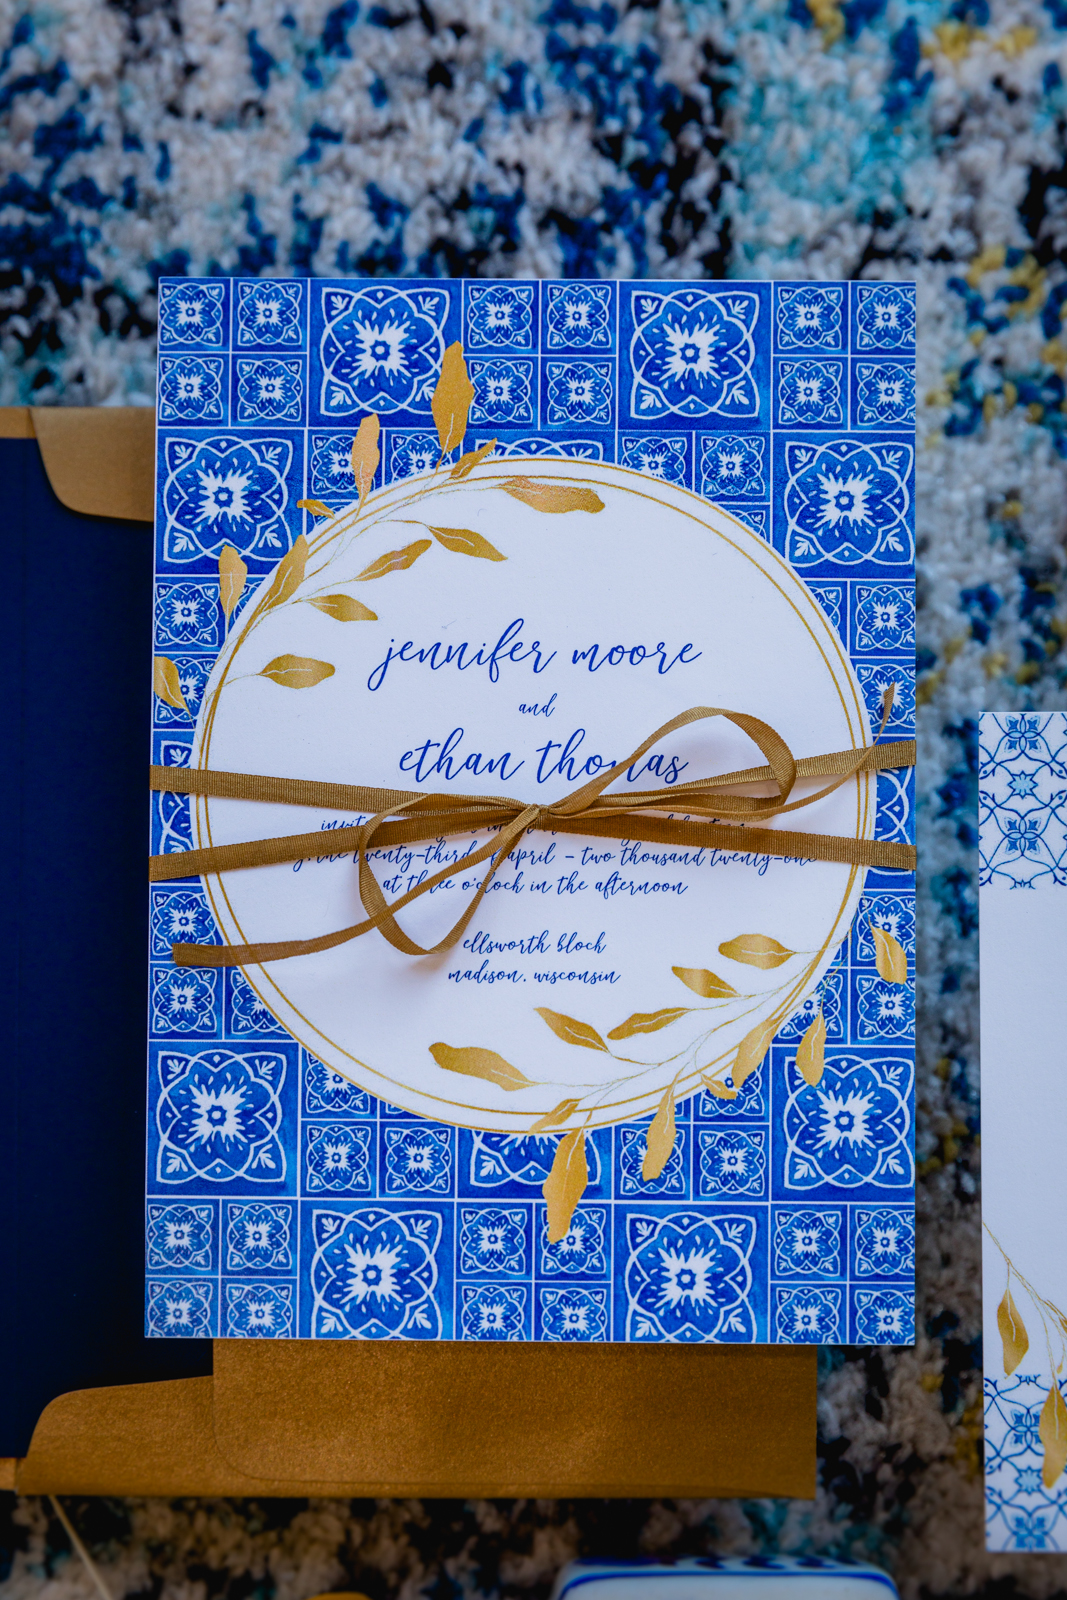 jennifer moore
and
ethan thomas
twenty-third april - two thousand twenty-one
at three o'clock in the afternoon
ellsworth bloch
madison, wisconsin